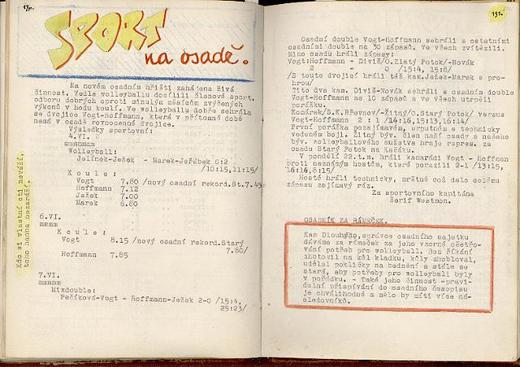 SPORT
na osadě.
Na novém osadním hřišti zahájena živá
činnost. Vedle volleyballu docílili členové sport.
odboru dobrých oproti minulým měsícům zvýšených
výkonů v hodu koulí. Ve volleyballu dobře sehrála
se dvojice Vogt-Hoffmann, která v přítomné době
nemá v osadě rovnocenné dvojice.
Výsledky sportovní:
4.VI.
Volleyball:
Jelínek-Ježek - Marek-Jeřábek 0:2
/10:15,11:15/
Koule:
Vogt 7.80 /nový osadní rekord.St.7.45
Hoffmann 7.12
Ježek 7.00
Marek 6.80
6.VI.
Koule:
Vogt 8.15 /nový osadní rekord.Starý
7.80/
Hoffmann 7.85
7.VI.
Mixdouble:
Pečíková-Vogt - Hoffmann-Ježek 2-0 /15:4,
25:23/
Kdo si vlastní cti neváží,
toho hanba nezarází.
191.
Osadní double Vogt-Hoffmann sehráli s ostatními
osadními double na 30 zápasů. Ve všech zvítězili.
Mimo osadu hráli:
Vogt:Hoffmann - Diviš/O.Zlatý Potok/-Novák
2 0 /15:4, 15:8/
/S touto dvojicí hráli též kam.Ježek-Marek s pro-
hrou/
Tito dva kam. Diviš-Novák sehráli s osadním double
Vogt-Hoffmann as 10 zápasů a ve všech utrpěli
porážku.
Komárek/S.K.Břevnov/-Žitný/O.Starý Potok/ versus
Vogt-Hoffmann 2 : 1 /14:16,15:13,16:14/
První porážka pozdějšími, urputném a technicky
vedeném boji. Žitný býv. člen naší osady a našeho
býv. volleyballového mužstva hraje repres. za
osadu Starý Potok na Kačáku.
V pondělí 22.t.m. hráli kamarádi Vogt - Hoffmann
proti neznámým hostům, které porazili 2-1 /13:15,
16:16,8:15/
Hosté hráli technicky, mrštně což dalo celému
zápasu zajímavý ráz.
Za sportovního kapitána
Šerif Westmon.
OSADNÍK ZA RÁMEČEK.
Kam Dlouhého, správce osadního majetku
dáváme za rámeček za jeho vzorné ošetřo-
vání potřeb pro volleyball. Bez říkání
zhotovil na kůl kladku, kůly zhobloval,
udělal pokličky na bednění a stále se
stará, aby potřeby pro volleyball byly
v pořádku. - Také jeho činnost -pravi-
delné přispívání do osadního časopisu
je chvályhodné a mělo by míti více ná-
sledovníků.